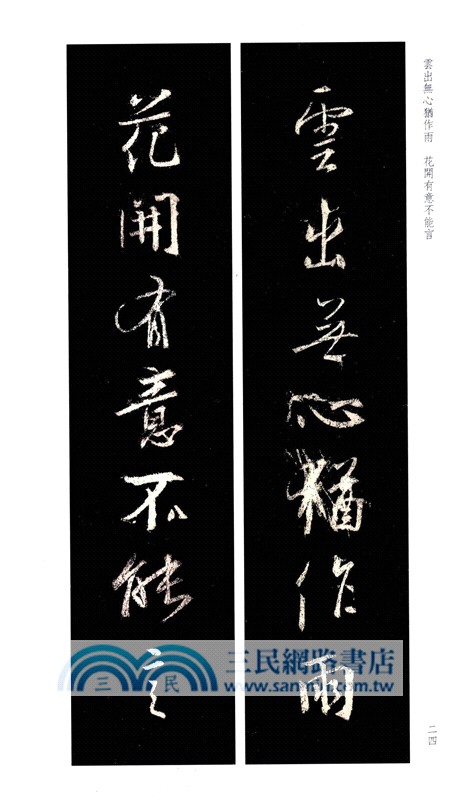 雲出無心猶作雨　花開有意不能言
雲出無心猶作雨
花開有意不能言
三民網路書店
三民
www.sanmin.com.tw
二四